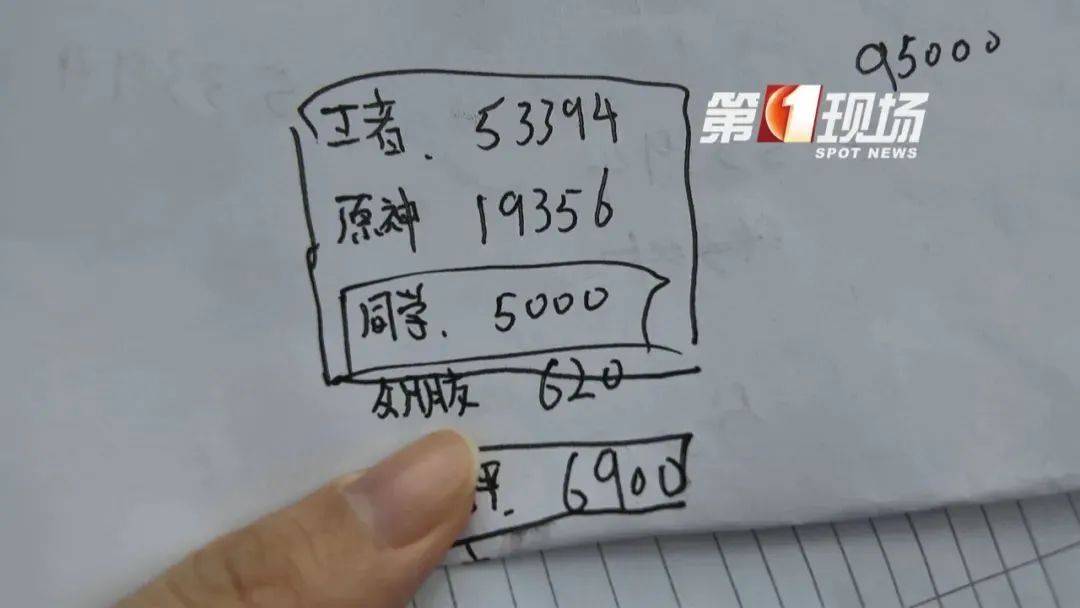 95000
第1现场
SPOT NEWS
王者. 53394
原神 19356
同学. 5000
女朋友 620
6900